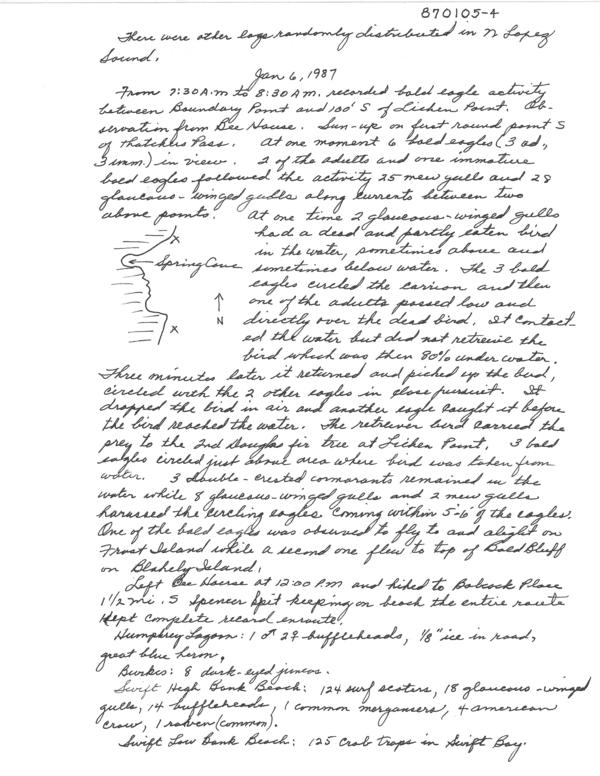 870105-4
There were other logs randomly distributed in N Lopez
Sound.
Jan 6, 1987
From 7:30 A.M to 8:30 A.M. recorded bald eagle activity
between Boundary Point and 100' S of Lichen Point. Ob-
servation from Bee House. Sun-up on first round point S
of Thatcher Pass. At one moment 6 bald eagles (3 ad.,
3 imm.) in view. 2 of the adults and one immature
bald eagles followed the activity 25 mew gulls and 28
glaucous-winged gulls along currents between two
above points. At one time 2 glaucous-winged gulls
had a dead and partly eaten bird
in the water, sometimes above and
sometimes below water. The 3 bald
eagles circled the carrion and then
one of the adults passed low and
directly over the dead bird. It contact-
ed the water but did not retrieve the
bird which was then 80% under water.
X
Spring Cove
N
X
Three minutes later it returned and picked up the bird,
circled with the 2 other eagles in close pursuit. It
dropped the bird in air and another eagle caught it before
the bird reached the water. The retriever bird carried the
prey to the 2nd Douglas fir tree at Lichen Point. 3 bald
eagles circled just above area where bird was taken from
water. 3 double-crested cormorants remained in the
water while 8 glaucous-winged gulls and 2 mew gulls
harassed the circling eagles coming within 5-6' of the eagles.
One of the bald eagles was observed to fly to and alight on
Frost Island while a second one flew to top of Bald Bluff
on Blakely Island.
Left Bee House at 12:00 P.M and hiked to Babcock Place
1 1/2 mi. S Spencer Spit keeping on beach the entire route
Kept complete record enroute.
Humphrey Lagoon: 1 ♂ 2♀ buffleheads, 1/8" ice in road,
great blue heron.
Burkes: 8 dark-eyed juncos.
Swift High Bank Beach: 124 surf scoters, 18 glaucous-winged
gulls, 14 buffleheads, 1 common mergansers, 4 american
crow, 1 raven (common).
Swift Low Bank Beach: 125 crab traps in Swift Bay.